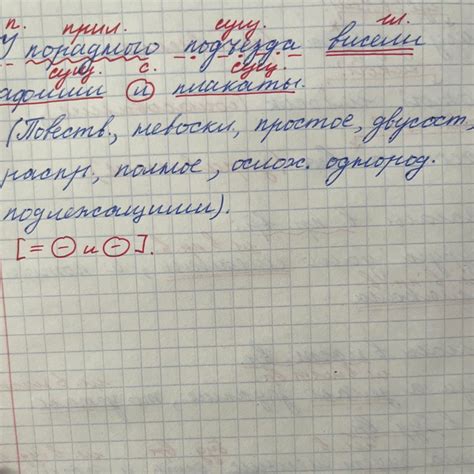 п. прил. сущ. гл.
У порадного подъезда висели
сущ. с. сущ.
афиши и плакаты.
(Повеств., невоскл, простое, двусост,
распр., полное, ослож. однород.
подлежащими).
[= ⊖ и ⊖].